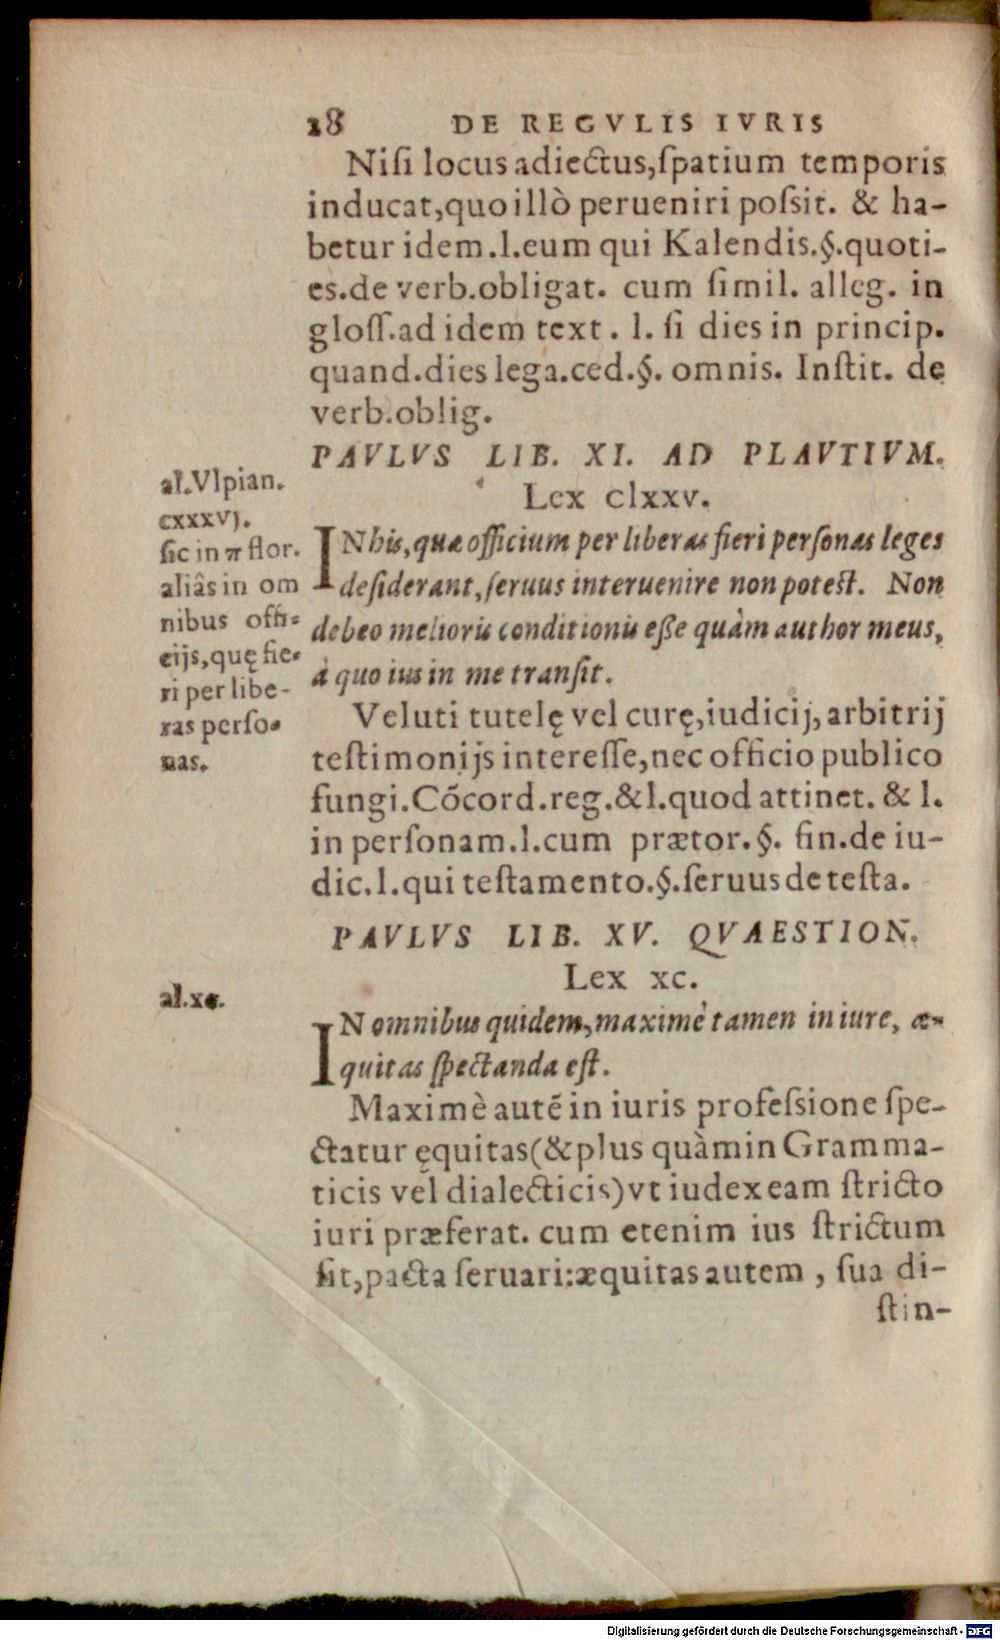 28 DE REGVLIS IVRIS
Niſi locus adiectus,ſpatium temporis
inducat,quo illò perueniri poſsit. & ha-
betur idem.l.eum qui Kalendis.§.quoti-
es.de verb.obligat. cum ſimil. alleg. in
gloſſ.ad idem text. l. ſi dies in princip.
quand.dies lega.ced.§. omnis. Inſtit. de
verb.oblig.
PAVLVS LIB. XI. AD PLAVTIVM.
Lex clxxv.
IN his,quæ officium per liberas fieri perſonas leges
deſiderant,ſeruus interuenire non poteſt. Non
debeo melioris conditionis eſſe quàm author meus,
à quo ius in me tranſit.
Veluti tutelę vel curę,iudicij,arbitrij
teſtimonijs intereſſe,nec officio publico
fungi.Cõcord.reg.&l.quod attinet. & l.
in perſonam.l.cum prætor.§. fin.de iu-
dic.l.qui teſtamento.§.ſeruus de teſta.
PAVLVS LIB. XV. QVAESTION.
Lex xc.
IN omnibus quidem,maximè tamen in iure, æ-
quitas ſpectanda eſt.
Maximè autẽ in iuris profeſsione ſpe-
ctatur ęquitas(&plus quàm in Gramma-
ticis vel dialecticis)vt iudex eam ſtricto
iuri præferat. cum etenim ius ſtrictum
ſit,pacta ſeruari:æquitas autem , ſua di-
ſtin-
al.Vlpian.
cxxxvj.
ſic in π flor.
aliâs in om
nibus offi-
cijs,quę fie-
ri per libe-
ras perſo-
nas.
al.xc.
Digitalisierung gefördert durch die Deutsche Forschungsgemeinschaft - DFG